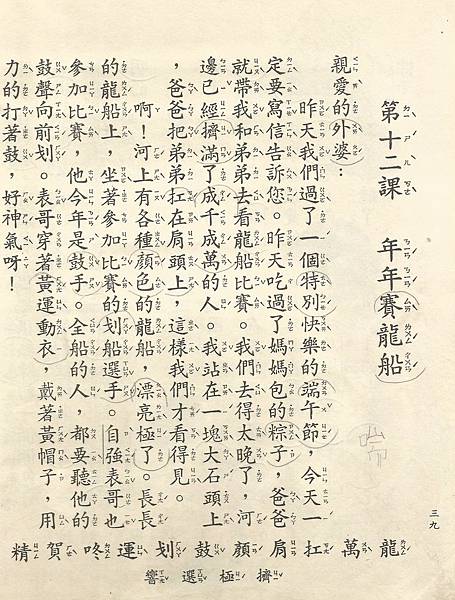 第十二課　年年賽龍船
親愛的外婆：
昨天我們過了一個特別快樂的端午節，今天一
定要寫信告訴您。昨天吃過了媽媽包的粽子，爸爸
就帶我和弟弟去看龍船比賽。我們去得太晚了，河
邊已經擠滿了成千成萬的人。我站在一塊大石頭上
，爸爸把弟弟扛在肩頭上，這樣我們才看得見。
啊！河上有各種顏色的龍船，漂亮極了。長長
的龍船上，坐著參加比賽的划船選手。自強表哥也
參加比賽，他今年是鼓手。全船的人，都要聽他的
鼓聲向前划。表哥穿著黃運動衣，戴著黃帽子，用
力的打著鼓，好神氣呀！
三九
龍萬扛肩顏鼓划運咚賀精
擠極選響